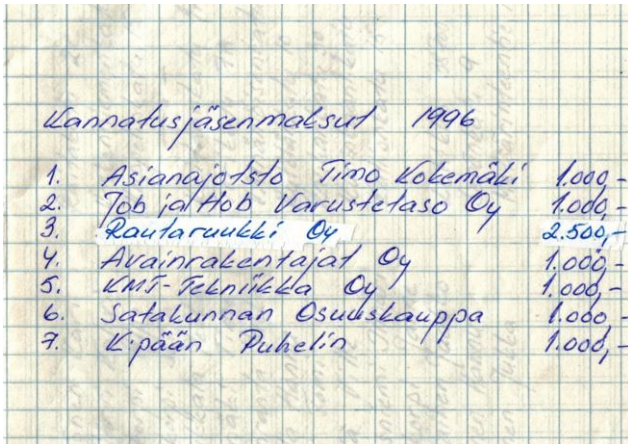 Kannatusjäsenmaksut 1996
1. Asianajotsto Timo Kokemäki 1.000,-
2. Job ja Hob Varustetaso Oy 1.000,-
3. Rautaruukki Oy 2.500,-
4. Avainrakentajat Oy 1.000,-
5. KMT-Tekniikka Oy 1.000,-
6. Satakunnan Osuuskauppa 1.000-
7. K:pään Puhelin 1.000,-